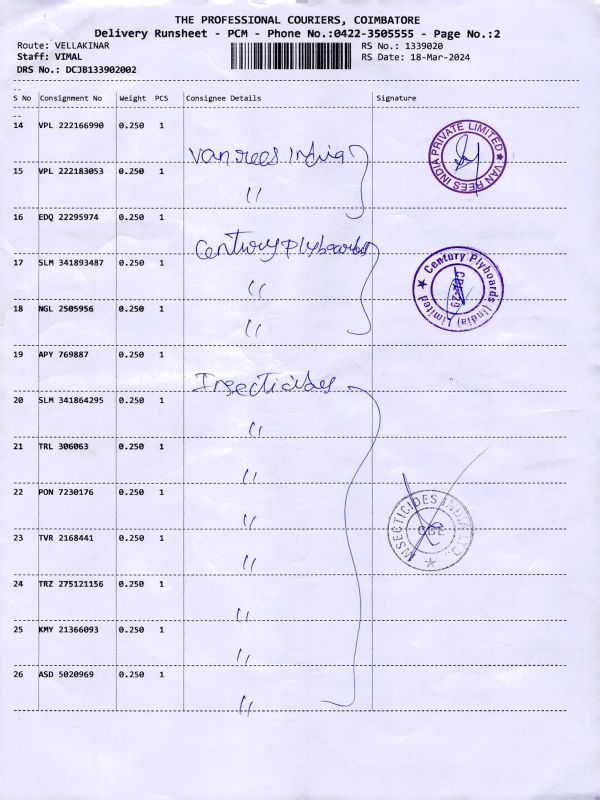 THE PROFESSIONAL COURIERS, COIMBATORE
Delivery Runsheet - PCM - Phone No.:0422-3505555 - Page No.:2
Route: VELLAKINAR RS No.: 1339020
Staff: VIMAL RS Date: 18-Mar-2024
DRS No.: DCJB133902002
--
S No Consignment No Weight PCS Consignee Details Signature
--
14 VPL 222166990 0.250 1 Van rees India
VAN REES INDIA PRIVATE LIMITED ★
15 VPL 222183053 0.250 1 "
16 EDQ 22295974 0.250 1 Century Plyboards
Century Plyboards (India) Limited ★
CBE-29
17 SLM 341893487 0.250 1 "
18 NGL 2505956 0.250 1 "
19 APY 769887 0.250 1 Insecticides
20 SLM 341864295 0.250 1 "
21 TRL 306063 0.250 1 "
22 PON 7230176 0.250 1 "
INSECTICIDES INDIA LTD. ★
CBE
23 TVR 2168441 0.250 1 "
24 TRZ 275121156 0.250 1 "
25 KMY 21366093 0.250 1 "
26 ASD 5020969 0.250 1 "